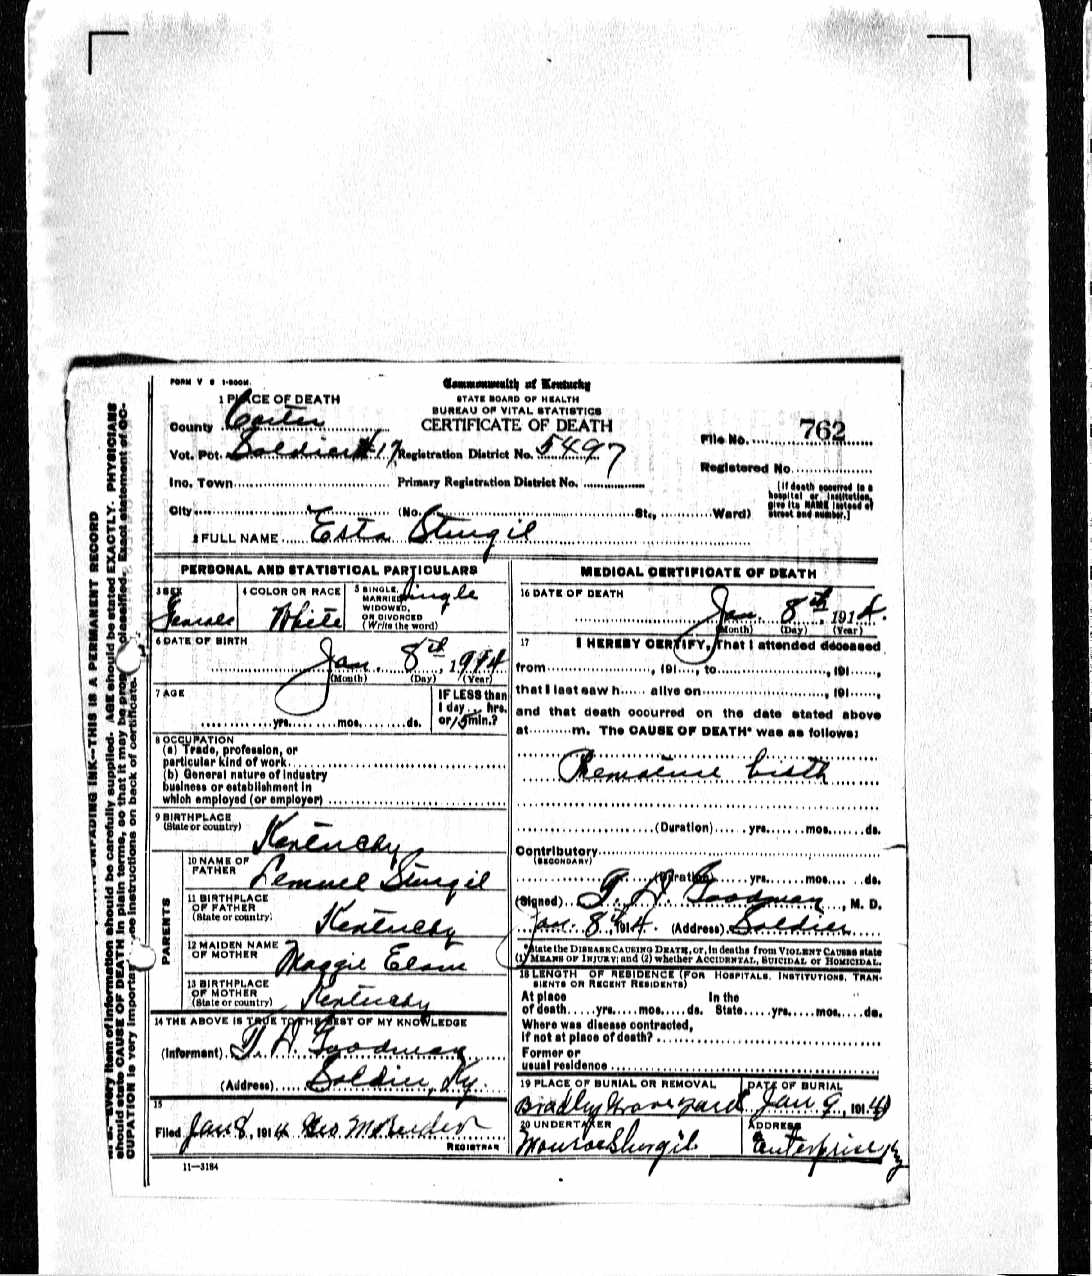 FORM V S 1-500M.
Commonwealth of Kentucky
STATE BOARD OF HEALTH
BUREAU OF VITAL STATISTICS
CERTIFICATE OF DEATH
1 PLACE OF DEATH
County Carter
Vot. Pct. Soldier #17 Registration District No. 5497
File No. 762
Inc. Town Primary Registration District No.
Registered No.
[If death occurred in a
hospital or institution,
give its NAME instead of
street and number.]
City (No. St., Ward)
2 FULL NAME Esta Sturgil
PERSONAL AND STATISTICAL PARTICULARS
3 SEX
Female
4 COLOR OR RACE
White
5 SINGLE,
MARRIED,
WIDOWED,
OR DIVORCED
(Write the word)
Single
6 DATE OF BIRTH
Jan. 8th, 1914
(Month) (Day) (Year)
7 AGE
yrs. mos. ds.
IF LESS than
1 day, hrs.
or 15 min.?
8 OCCUPATION
(a) Trade, profession, or
particular kind of work
(b) General nature of industry
business or establishment in
which employed (or employer)
9 BIRTHPLACE
(State or country)
Kentucky
PARENTS
10 NAME OF
FATHER
Lemuel Sturgil
11 BIRTHPLACE
OF FATHER
(State or country)
Kentucky
12 MAIDEN NAME
OF MOTHER
Maggie Elam
13 BIRTHPLACE
OF MOTHER
(State or country)
Kentucky
14 THE ABOVE IS TRUE TO THE BEST OF MY KNOWLEDGE
(Informant) T. D. Goodman
(Address) Soldier, Ky.
15
Filed Jan 8, 1914 Geo
REGISTRAR
11—3184
MEDICAL CERTIFICATE OF DEATH
16 DATE OF DEATH
Jan. 8th, 1914.
(Month) (Day) (Year)
17 I HEREBY CERTIFY, That I attended deceased
from , 191 , to , 191 ,
that I last saw h alive on , 191 ,
and that death occurred on the date stated above
at m. The CAUSE OF DEATH* was as follows:
Premature birth
(Duration) yrs. mos. ds.
Contributory
(SECONDARY)
(Duration) yrs. mos. ds.
(Signed) T. D. Goodman, M. D.
Jan. 8th, 1914. (Address) Soldier
*State the DISEASE CAUSING DEATH, or, in deaths from VIOLENT CAUSES state
(1) MEANS OF INJURY; and (2) whether ACCIDENTAL, SUICIDAL or HOMICIDAL.
18 LENGTH OF RESIDENCE (FOR HOSPITALS, INSTITUTIONS, TRAN-
SIENTS OR RECENT RESIDENTS)
At place In the
of death yrs. mos. ds. State yrs. mos. ds.
Where was disease contracted,
if not at place of death?
Former or
usual residence
19 PLACE OF BURIAL OR REMOVAL
Bradley Graveyard
DATE OF BURIAL
Jan 9, 1914
20 UNDERTAKER
Monroe Sturgil
ADDRESS
Enterprise Ky
UNFADING INK—THIS IS A PERMANENT RECORD
Every item of information should be carefully supplied. AGE should be stated EXACTLY. PHYSICIANS
should state CAUSE OF DEATH in plain terms, so that it may be classified. Exact statement of OC-
CUPATION is very important. instructions on back of certificate.